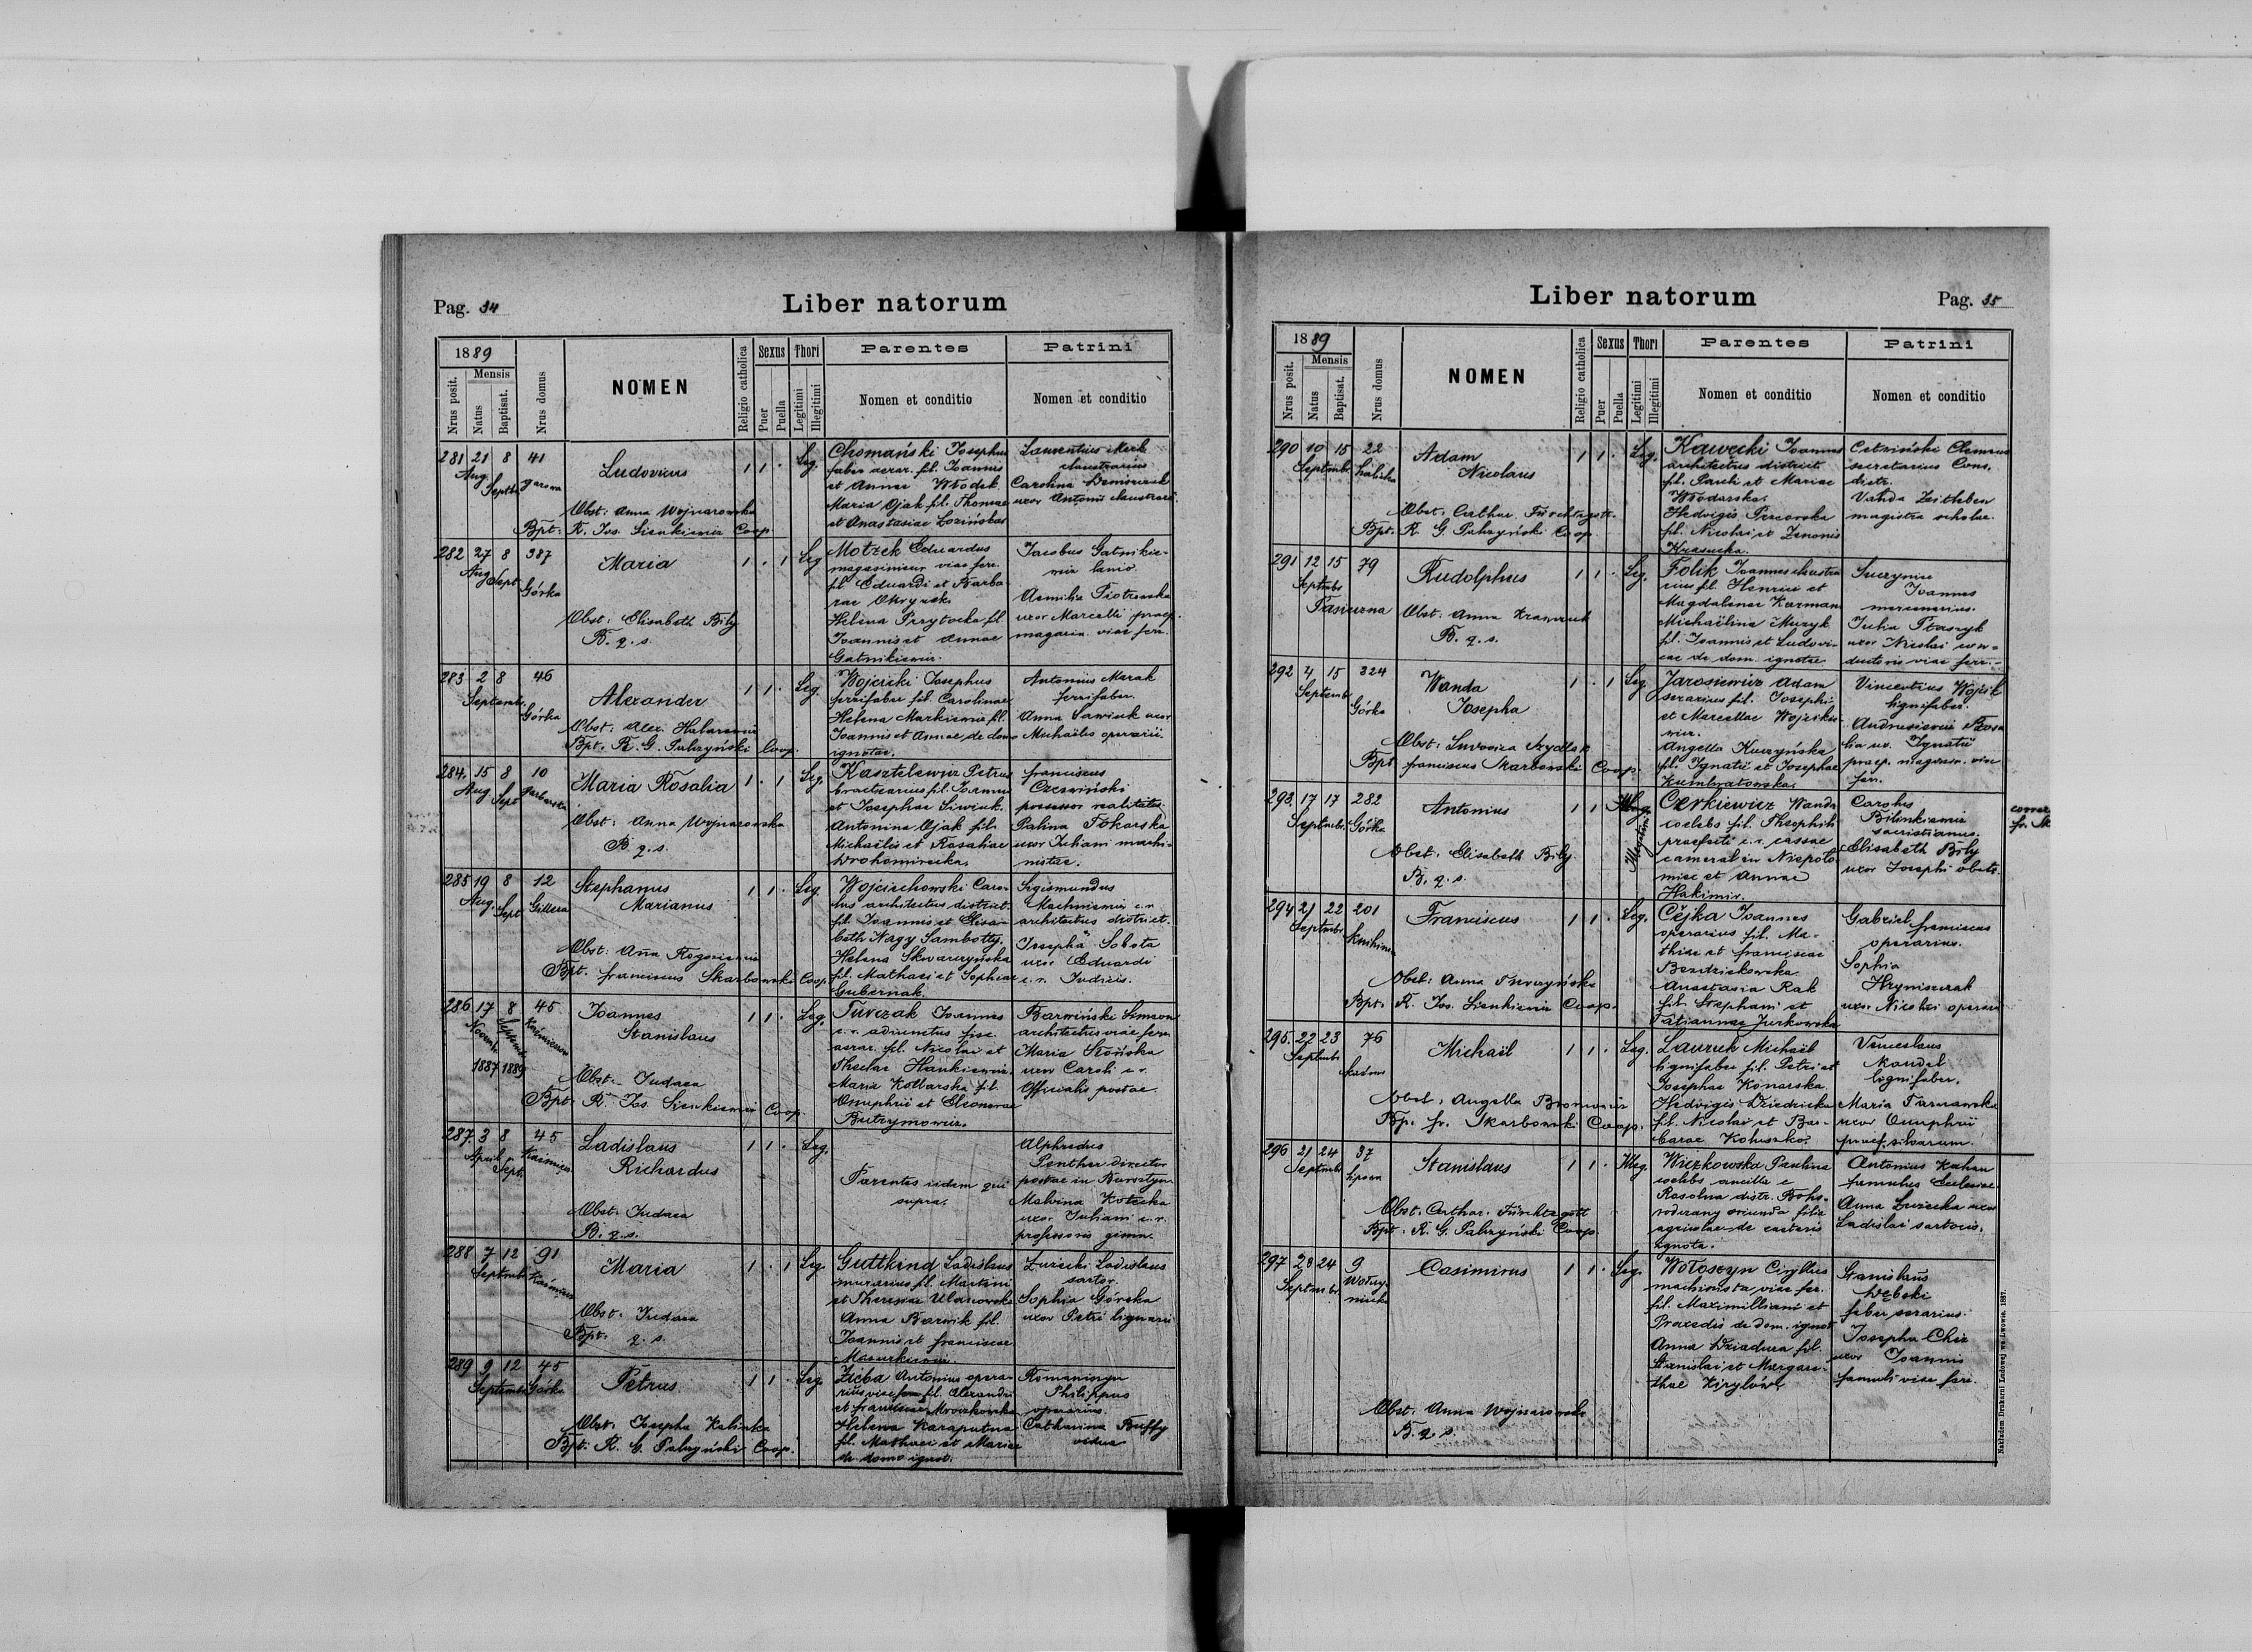 Pag. 34
Liber natorum
1889
Mensis
Nrus posit.
Natus
Baptisat.
Nrus domus
NOMEN
Religio catholica
Sexus
Puer
Puella
Thori
Legitimi
Illegitimi
Parentes
Nomen et conditio
Patrini
Nomen et conditio
281 21 8 41
Aug. Septb.
Ludovicus
1 1 . Leg.
Obst: Anna Wojnarowska
Bpt: R. Jos. Sienkiewicz Coop.
Chomański Josephus
faber aerar. fil. Joannis
et Annae Włodek
Maria Ojak fil. Thomae
et Anastasiae Łozińska
Laurentius
Carolina
uxor Antonii
282 27 8 387
Aug. Sept. Górka
Maria
1 . 1 Leg
Obst: Elisabeth Bily
B. q. s.
Motzek Eduardus
magasineur viae ferr.
fil. Eduardi et Barba-
rae
Helena Przytocka fil.
Joannis et Annae
Gatnikiewicz.
Jacobus Gatnikie-
wicz lanio
Aemilia Piotrowska
uxor Marcelli praef.
magazin. viae ferr.
283 2 8 46
Septemb. Górka
Alexander
1 1 . Leg.
Obst: Alex.
Bpt. R. G. Palczyński Coop.
Wojcicki Josephus
ferrifaber fil. Carolinae
Helena Markiewicz fil.
Joannis et Annae, de domo
ignotae.
Antonius Marak
ferrifaber.
Anna Sawiuk uxor
Michaëlis operarii.
284. 15 8 10
Aug Sept Garbarska
Maria Rosalia
1 . 1 Leg.
Obst: Anna Wojnarowska
B. q. s.
Kasztelewicz Petrus
fil. Joannis
et Josephae Siwiuk.
Antonina Ojak fil.
Michaëlis et Rosaliae
Drohomirecka.
Franciscus
Czerwiński
possessor realitatis.
Palina Tokarska
uxor Juliani machi-
nistae.
285 19 8 12
Aug. Sept. Gillera
Stephanus
Marianus
1 1 . Leg.
Obst. Aña Rogoziewicz
Bpt. Franciscus Skarbowski Coop.
Wojciechowski Caro-
lus architectus district.
fil. Joannis et Elisa-
beth Nagy Sambotty.
Helena Skwarczyńska
fil. Mathaei et Sophiae
Gubernak.
Sigismundus
Machniewicz c. r.
architectus district.
Josepha Sobota
uxor Eduardi
c. r. Judicis.
286 17 8 45
Novemb. Septemb.
1887 1889
Joannes
Stanislaus
1 1 . Leg.
Obst. Judaea
Bpt. R. Jos. Sienkiewicz Coop.
Turczak Joannes
c. r. adiunctus fisc.
aerar. fil. Nicolai et
Theclae Hankiewicz.
Maria Kotlarska fil.
Onuphrii et Eleonorae
Butrymowicz.
Barwiński Simeon
architectus viae ferr.
Maria Słońska
uxor Caroli c. r.
Officialis postae.
287. 3 8 45
April. Sept. Kazimierz.
Ladislaus
Richardus
1 1 . Leg.
Obst. Judaea
B. q. s.
Parentes iidem qui
supra.
Alphredus
Penther director
postae in Bursztyn
Malvina
uxor Juliani c. r.
professoris gimn.
288 7 12 91
Septemb.
Maria
1 . 1 Leg.
Obst. Judaea
Bpt. q. s.
Guttkind Ladislaus
murarius fil. Martini
et Theresiae Ulanowska
Anna Barwik fil.
Joannis et Franciscae
Mazurkiewicz.
Łuzecki Ladislaus
sartor.
Sophia Górska
uxor Petri lignarii
289 9 12 45
Septemb. Górka
Petrus
1 1 . Leg
Obst. Josepha Kalinka
Bpt. R. G. Palczyński Coop.
Zięba Antonius opera-
rius viae ferr. fil. Alexandri
et Franciscae Mroczkowska
Helena Karaputna
fil. Mathaei et Mariae
de domo ignot.
Romaningyn
Philippus
operarius.
Catharina Buffy
vidua
Liber natorum
Pag. 35
1889
Mensis
Nrus posit.
Natus
Baptisat.
Nrus domus
NOMEN
Religio catholica
Sexus
Puer
Puella
Thori
Legitimi
Illegitimi
Parentes
Nomen et conditio
Patrini
Nomen et conditio
290 10 15 22
Septemb. Halicka
Adam
Nicolaus
1 1 . Leg.
Obst. Cathar. Fürchtegott.
Bpt. R. G. Palczyński Coop.
Kawecki Joannes
architectus district.
fil. Pauli et Mariae
Włodarska.
Hedvigis
fil. Nicolai et Zenonis
Krasucka.
Cetwiński Clemens
secretarius Cons.
distr.
Vanda Zeitleben
magistra scholae.
291 12 15 79
Septmb
Pasieczna
Rudolphus
1 1 . Leg.
Obst: Anna Krawczuk
B. q. s.
Folik Joannes
fil. Henrici et
Magdalenae Karman
Michaëlina Muzyk
fil. Joannis et Ludovi-
cae de dom. ignotae
Joannes
mercenarius.
Julia Ptaszyk
uxor Nicolai con-
ductoris viae ferr.
292 4 15 324
Septemb. Górka
Wanda
Josepha
1 . 1 Leg
Obst: Ludovica Szydłak
Bpt Franciscus Skarbowski Coop.
Jarosiewicz Adam
serarius fil. Josephi
et Marcellae Wojcikie-
wicz.
Angella Kuczyńska
fil. Ignatii et Josephae
Kumbratowska.
Vincentius Wojcik
lignifaber.
Andrusiewicz Rosa-
lia ux. Ignatii
praef. magasin. viae
fer.
293. 17 17 282
Septemb. Górka
Antonius
1 1 . Illeg.
Illegitimi
Obst. Elisabeth Bily.
B. q. s.
Czerkiewicz Wanda
coelebs fil. Theophili
praefecti c. r. cassae
cameral in Niepoło-
mice et Annae
Hakimir.
Carolus
Bilinkiewicz
sacristianus.
Elisabeth Bily
uxor Josephi obst.
294 21 22 201
Septmb. Knihinin
Franciscus
1 1 . Leg.
Obst: Anna Turczyńska
Bpt. R. Jos. Sienkiewicz Coop.
Čejka Joannes
operarius fil. Ma-
thiae et Franciscae
Anastasia Rak
fil. Stephani et
Tatiannae Jurkowska
Gabriel Franciscus
operarius.
Sophia
Hryniszczak
uxor Nicolai operarii
295. 22 23 76
Septmb.
Michaël
1 1 . Leg.
Obst. Angella
Bp. Fr. Skarbowski Coop.
Lauruk Michaël
lignifaber fil. Petri et
Josephae Konarska.
Hedvigis Dziedzicka
fil. Nicolai et Bar-
barae Koluszko.
Venceslaus
Kandel
lignifaber.
Maria Tarnawska
uxor Onuphrii
praef. silvarum.
296 21 24 37
Septmb Lipowa
Stanislaus
1 1 . Illeg.
Obst. Cathar. Fürchtegott
Bpt. R. G. Palczyński Coop
Wiczkowska Paulina
coelebs ancilla e
Rosolna distr. Boho-
rodczany oriunda filia
agricolae de caeteris
ignota.
Antonius Kahan
famulus Ecclesiae
Anna Łuzecka uxor
Ladislai sartoris.
297 23 24 9
Septmb.
Casimirus
1 1 . Leg.
Obst. Anna Wojnarowska
B. q. s.
Wołoszyn Ciryllus
machinista viae fer.
fil. Maximilliani et
Praxedis de dom. ignot
Anna Dziadura fil.
Stanislai et Margare-
thae Kirylow
Stanislaus
Dębski
faber serarius.
Josepha
uxor Joannis
famuli viae ferr.
Nakładem Drukarni Ludowej we Lwowie. 1887.